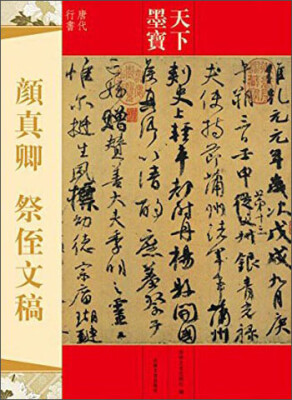 天下
墨寶
唐代
行書
顏真卿 祭侄文稿
維乾元元年歲次戊戌九月庚
午朔三日壬申第十三叔從父銀青光祿
夫使持節蒲州諸軍事蒲州
刺史上輕車都尉丹楊縣開國
侯真卿以清酌庶羞祭于
亡姪贈贊善大夫季明之靈曰
惟爾挺生夙標幼德宗廟瑚璉